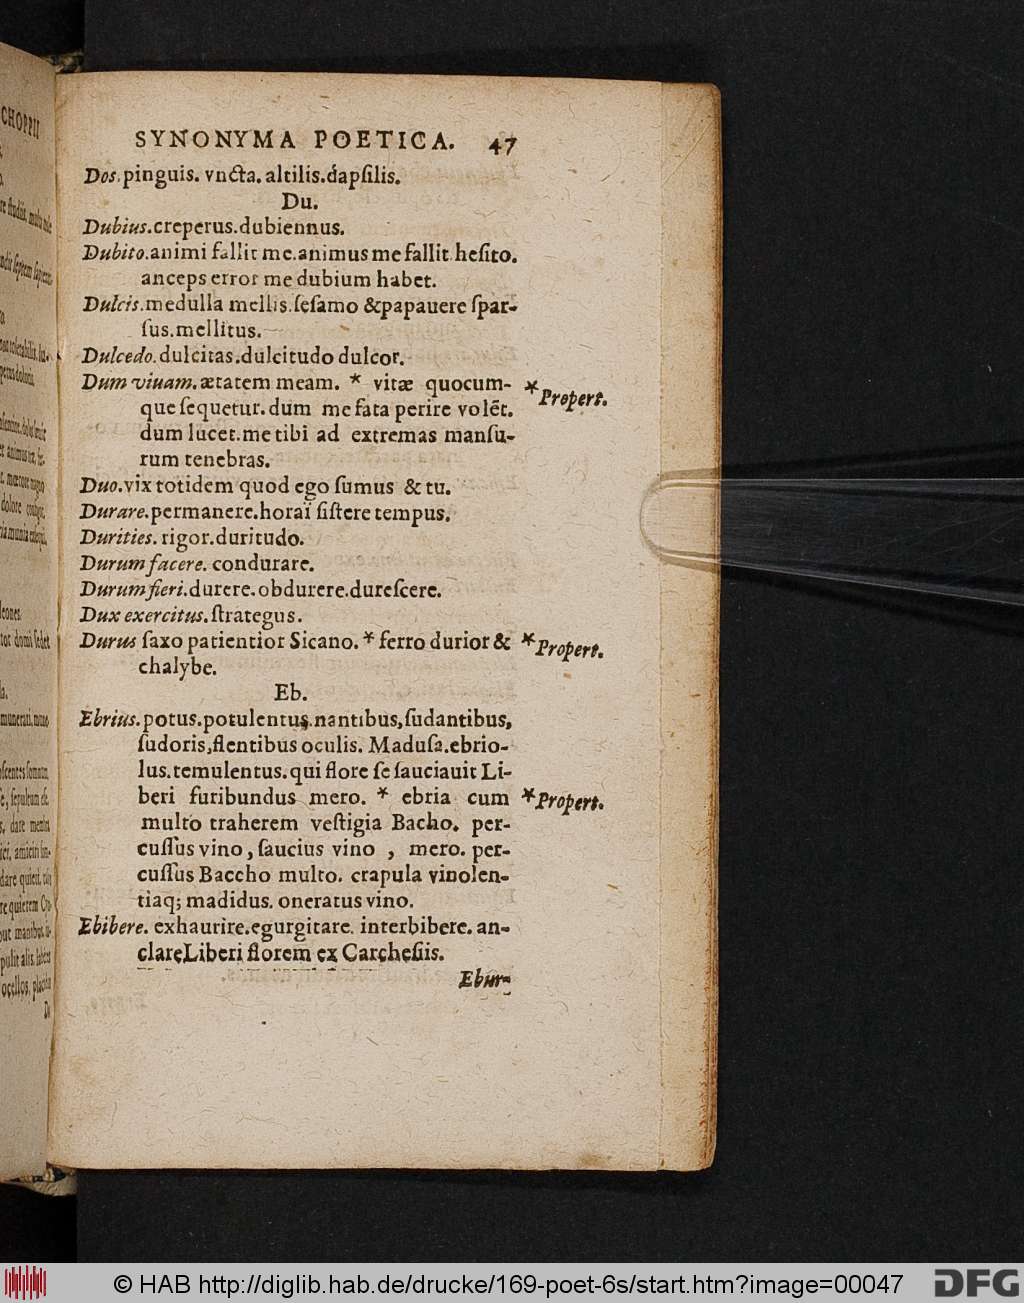 SYNONYMA POETICA. 47
Dos.pinguis. vncta. altilis.dapſilis.
Du.
Dubius.creperus.dubiennus.
Dubito.animi fallit me.animus me fallit.heſito.
anceps error me dubium habet.
Dulcis.medulla mellis.ſeſamo &papauere ſpar-
ſus.mellitus.
Dulcedo.dulcitas.dulcitudo dulcor.
Dum viuam.ætatem meam. * vitæ quocum-
* Propert.
que ſequetur.dum me fata perire volēt.
dum lucet.me tibi ad extremas manſu-
rum tenebras.
Duo.vix totidem quod ego ſumus & tu.
Durare.permanere.horaï ſiſtere tempus.
Durities. rigor.duritudo.
Durum facere. condurare.
Durum fieri.durere.obdurere.dureſcere.
Dux exercitus.ſtrategus.
Durus ſaxo patientior Sicano. * ferro durior &
* Propert.
chalybe.
Eb.
Ebrius.potus.potulentus.nantibus,ſudantibus,
ſudoris,flentibus oculis. Maduſa.ebrio-
lus.temulentus.qui flore ſe ſauciauit Li-
beri furibundus mero. * ebria cum
* Propert.
multo traherem veſtigia Bacho. per-
cuſſus vino, ſaucius vino , mero. per-
cuſſus Baccho multo. crapula vinolen-
tiaq; madidus. oneratus vino.
Ebibere. exhaurire.egurgitare. interbibere. an-
clare,Liberi florem ex Carcheſiis.
Ebur-
CHOPPII
© HAB http://diglib.hab.de/drucke/169-poet-6s/start.htm?image=00047
DFG